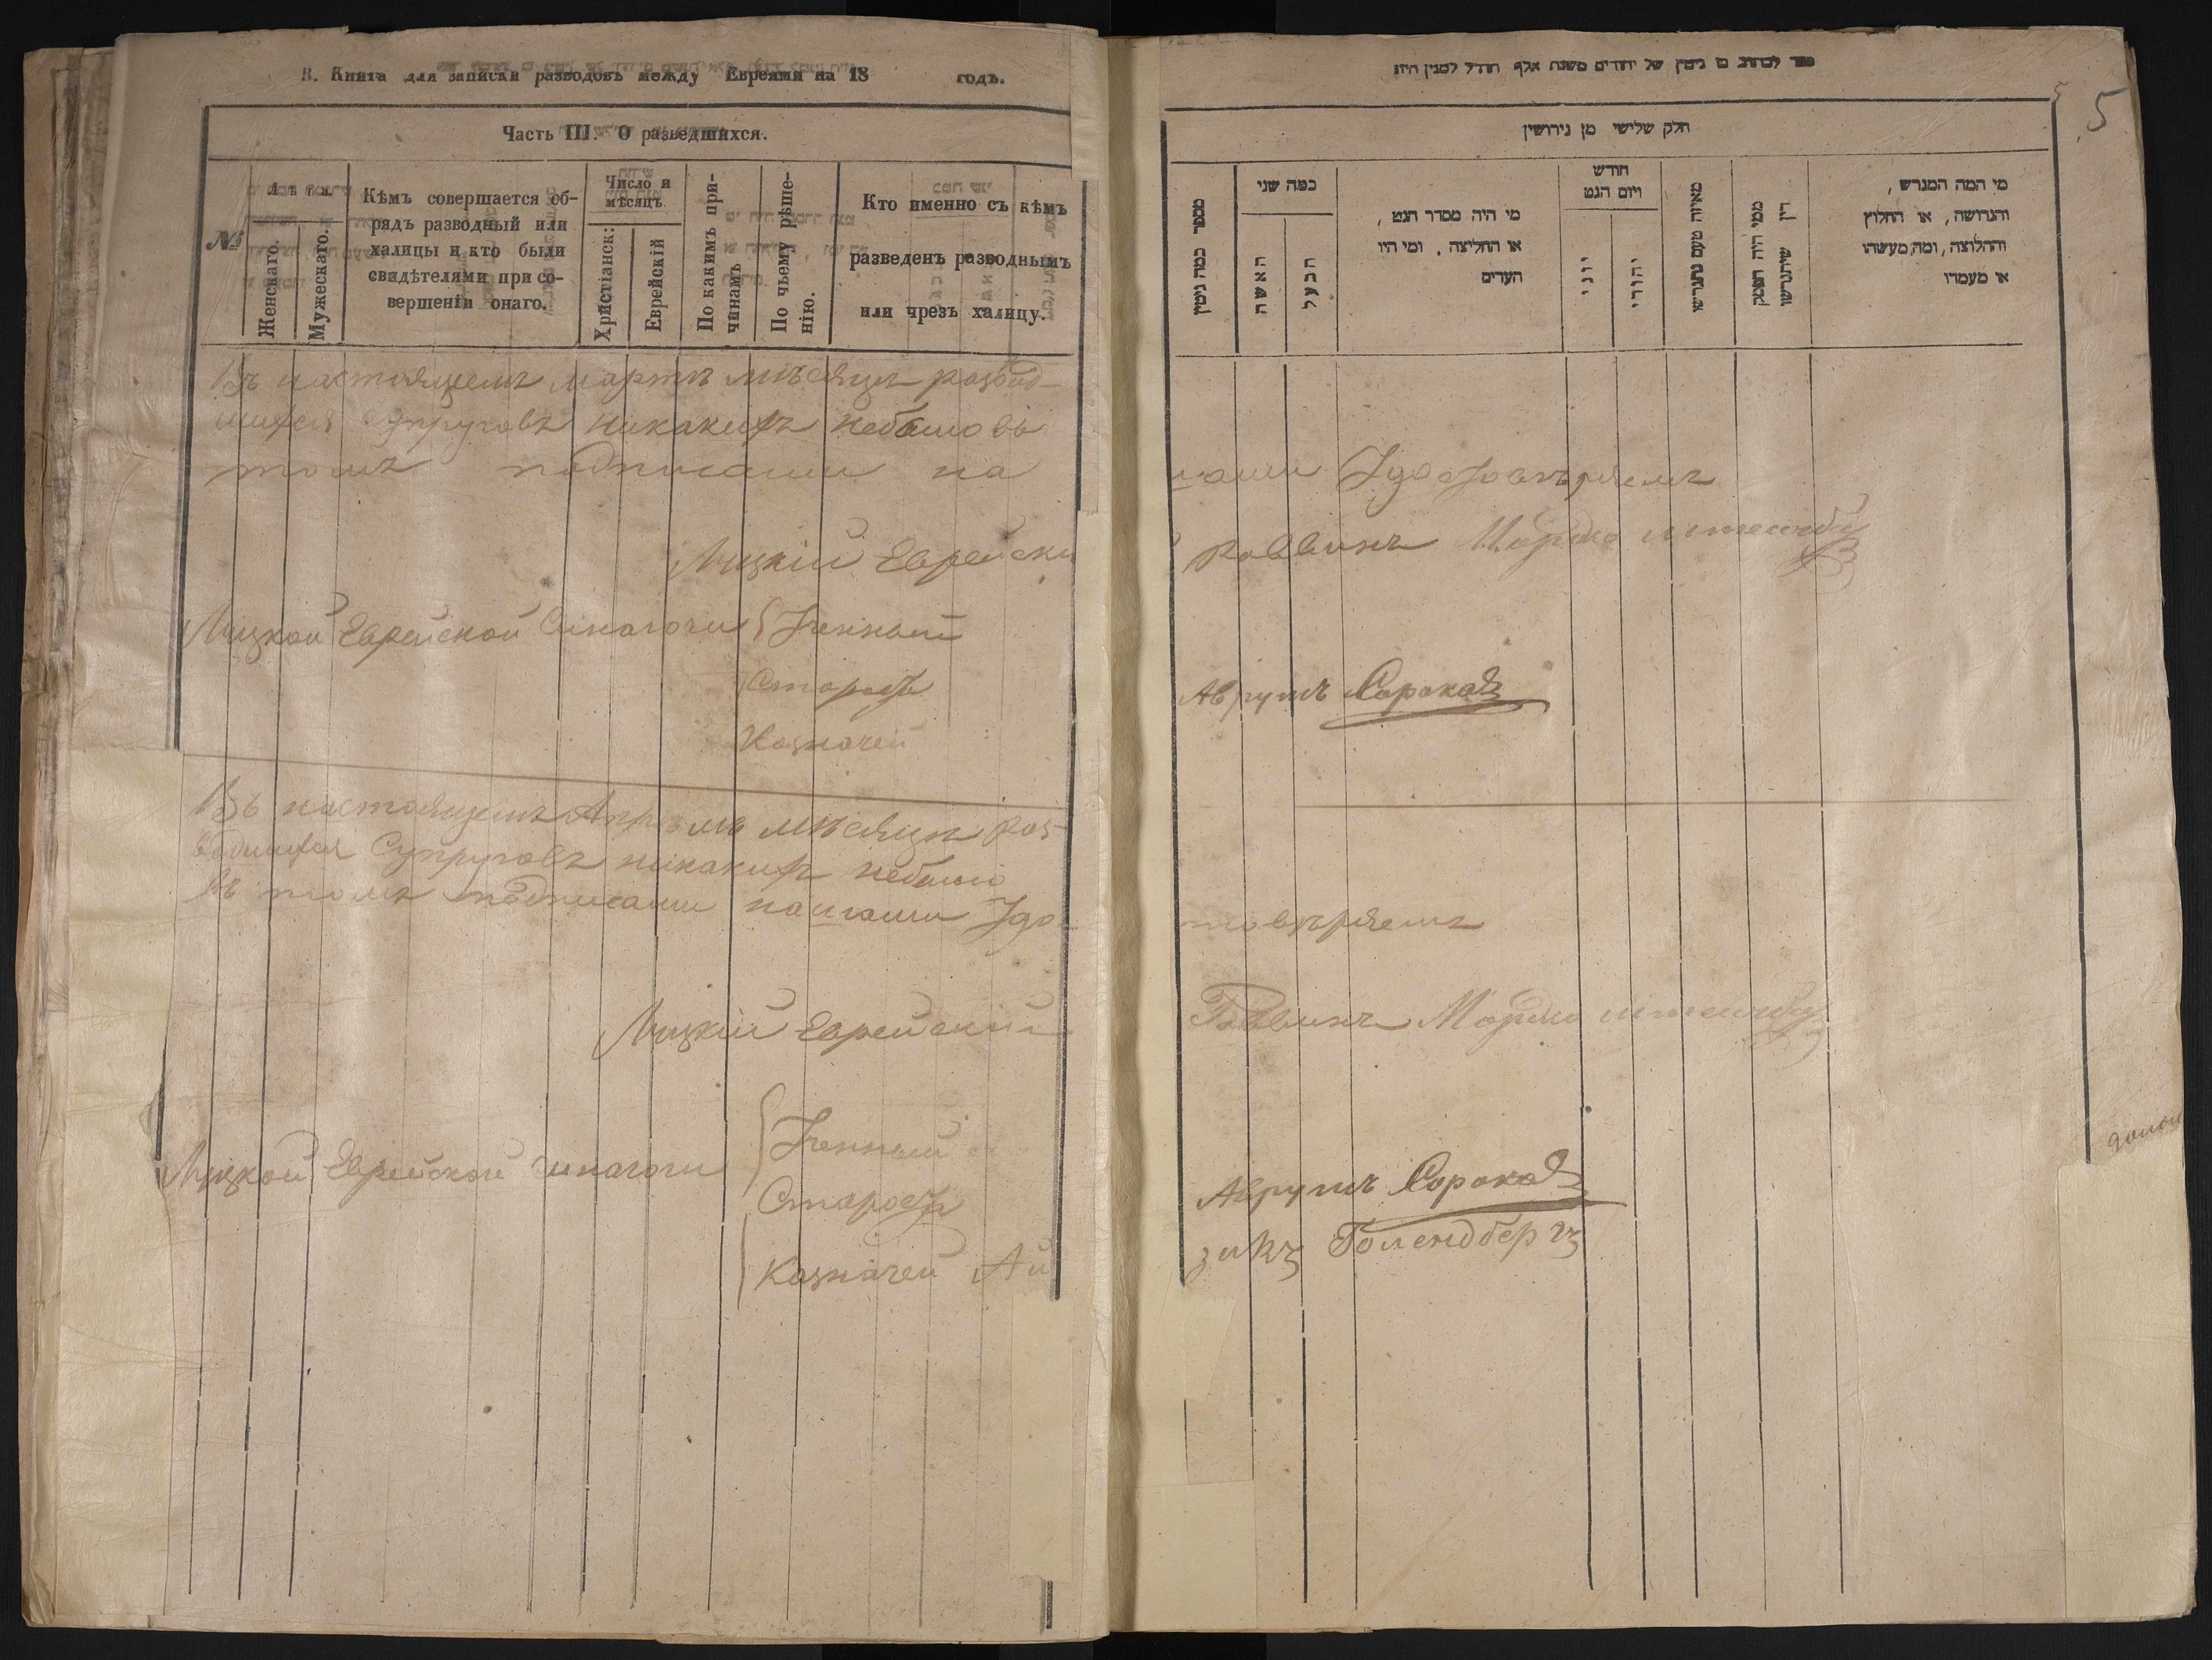 В. Книга для записки разводовъ между Евреями на 18 годъ.
Часть III. О разведшихся.
№
Лѣта.
Женскаго.
Мужескаго.
Кѣмъ совершается об-
рядъ разводный или
халицы и кто были
свидѣтелями при со-
вершеніи онаго.
Число и
мѣсяцъ.
Христіанск:
Еврейскій
По какимъ при-
чинамъ
По чьему рѣше-
нію.
Кто именно съ кѣмъ
разведенъ разводнымъ
или чрезъ халицу.
Въ настоящемъ мартѣ мѣсяцѣ развод-
шихся супруговъ никакихъ небыло въ
томъ подписами на
Луцкій Еврейски
Луцкой Еврейской Синагоги
Ученный
Староста
Казначей
Въ настоящемъ Апрѣлѣ мѣсяцѣ раз-
ведшихся Супруговъ никакихъ небыло
въ томъ подписами нашами Удо-
Луцкій Еврейскій
Луцкой Еврейской синагоги
Ученный
Староста
Казначей Ай
של יהודים משנת אלף
5
חלק שלישי מן גירושין
מספר כמה גיטין
כמה שני
האשה
הבעל
מי היה מסדר הגט,
או החליצה. ומי היו
העדים
חודש
ויום הגט
יוני
יהודי
מאיזה טעם נתגרשו
ממי היה הפסק
דין שיתגרשו
מי המה המגרש,
והגרושה, או החלוץ
והחלוצה, ומה מעשהו
או מעמדו
шами Удостовѣряемъ
Раввинъ Мордко
Аврумъ Сорока
товѣряемъ
Раввинъ Мордко
Аврумъ Сорока
зикъ Голендберг